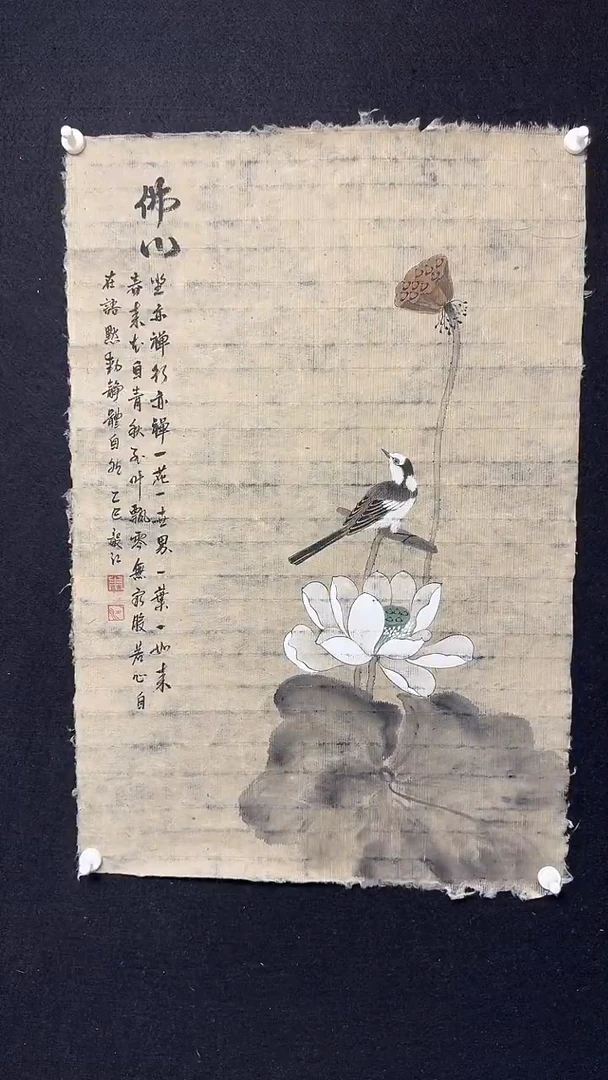 佛心
坐亦禪行亦禪一花一世界一葉一如来
春来花自青秋至叶飄零無窮般若心自
在語默動静體自然 乙巳 毅江